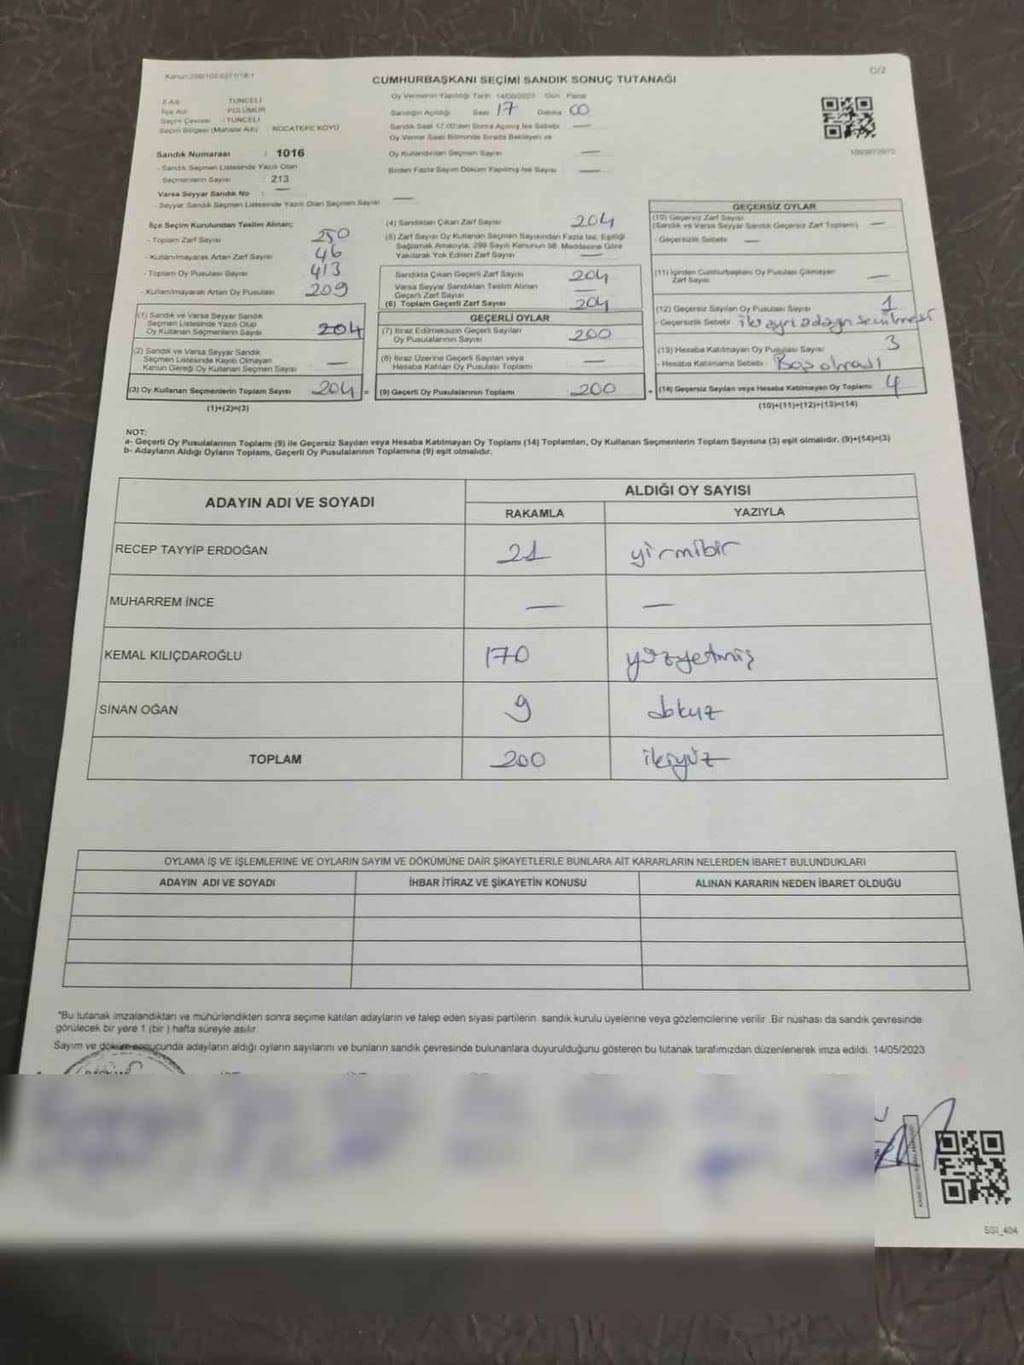 CUMHURBAŞKANI SEÇİMİ SANDIK SONUÇ TUTANAĞI
C/2
İl Adı : TUNCELİ
İlçe Adı : PÜLÜMÜR
Seçim Çevresi : TUNCELİ
Seçim Bölgesi (Mahalle Adı) : KOCATEPE KÖYÜ
Sandık Numarası : 1016
- Sandık Seçmen Listesinde Yazılı Olan
Seçmenlerin Sayısı : 213
Varsa Seyyar Sandık No : —
- Seyyar Sandık Seçmen Listesinde Yazılı Olan Seçmen Sayısı —
Oy Vermenin Yapıldığı Tarih: 14/05/2023 Gün: Pazar
Sandığın Açıldığı Saat 17 Dakika 00
Sandık Saat 17.00'den Sonra Açılmış İse Sebebi —
Oy Verme Saati Bitiminde Sırada Bekleyen ve
Oy Kullandırılan Seçmen Sayısı —
Birden Fazla Sayım Döküm Yapılmış İse Sayısı —
İlçe Seçim Kurulundan Teslim Alınan;
- Toplam Zarf Sayısı 250
- Kullanılmayarak Artan Zarf Sayısı 46
- Toplam Oy Pusulası Sayısı 413
- Kullanılmayarak Artan Oy Pusulası 209
(1) Sandık ve Varsa Seyyar Sandık
Seçmen Listesinde Yazılı Olup
Oy Kullanan Seçmenlerin Sayısı 204
(2) Sandık ve Varsa Seyyar Sandık
Seçmen Listesinde Kayıtlı Olmayan
Kanun Gereği Oy Kullanan Seçmen Sayısı —
(3) Oy Kullanan Seçmenlerin Toplam Sayısı 204 =
(1)+(2)=(3)
(4) Sandıktan Çıkan Zarf Sayısı 204
(5) Zarf Sayısı Oy Kullanan Seçmen Sayısından Fazla İse, Eşitliği
Sağlamak Amacıyla, 298 Sayılı Kanunun 98. Maddesine Göre
Yakılarak Yok Edilen Zarf Sayısı —
Sandıkta Çıkan Geçerli Zarf Sayısı 204
Varsa Seyyar Sandıktan Teslim Alınan
Geçerli Zarf Sayısı —
(6) Toplam Geçerli Zarf Sayısı 204
GEÇERLİ OYLAR
(7) İtiraz Edilmeksizin Geçerli Sayılan
Oy Pusulalarının Sayısı 200
(8) İtiraz Üzerine Geçerli Sayılan veya
Hesaba Katılan Oy Pusulası Toplamı —
(9) Geçerli Oy Pusulalarının Toplamı 200 +
GEÇERSİZ OYLAR
(10) Geçersiz Zarf Sayısı
(Sandık ve Varsa Seyyar Sandık Geçersiz Zarf Toplamı) —
- Geçersizlik Sebebi —
(11) İçinden Cumhurbaşkanı Oy Pusulası Çıkmayan
Zarf Sayısı —
(12) Geçersiz Sayılan Oy Pusulası Sayısı 1
- Geçersizlik Sebebi iki ayrı adayın seçilmesi
(13) Hesaba Katılmayan Oy Pusulası Sayısı 3
- Hesaba Katılmama Sebebi Boş olması
(14) Geçersiz Sayılan veya Hesaba Katılmayan Oy Toplamı 4
(10)+(11)+(12)+(13)=(14)
NOT:
a- Geçerli Oy Pusulalarının Toplamı (9) ile Geçersiz Sayılan veya Hesaba Katılmayan Oy Toplamı (14) Toplamları, Oy Kullanan Seçmenlerin Toplam Sayısına (3) eşit olmalıdır. (9)+(14)=(3)
b- Adayların Aldığı Oyların Toplamı, Geçerli Oy Pusulalarının Toplamına (9) eşit olmalıdır.
ADAYIN ADI VE SOYADI
ALDIĞI OY SAYISI
RAKAMLA YAZIYLA
RECEP TAYYİP ERDOĞAN 21 yirmibir
MUHARREM İNCE — —
KEMAL KILIÇDAROĞLU 170 yüzyetmiş
SİNAN OĞAN 9 dokuz
TOPLAM 200 ikiyüz
OYLAMA İŞ VE İŞLEMLERİNE VE OYLARIN SAYIM VE DÖKÜMÜNE DAİR ŞİKAYETLERLE BUNLARA AİT KARARLARIN NELERDEN İBARET BULUNDUKLARI
ADAYIN ADI VE SOYADI İHBAR İTİRAZ VE ŞİKAYETİN KONUSU ALINAN KARARIN NEDEN İBARET OLDUĞU
*Bu tutanak imzalandıktan ve mühürlendikten sonra seçime katılan adayların ve talep eden siyasi partilerin sandık kurulu üyelerine veya gözlemcilerine verilir .Bir nüshası da sandık çevresinde
görülecek bir yere 1 (bir ) hafta süreyle asılır.
Sayım ve döküm sonucunda adayların aldığı oyların sayılarını ve bunların sandık çevresinde bulunanlara duyurulduğunu gösteren bu tutanak tarafımızdan düzenlenerek imza edildi. 14/05/2023
SSI_404